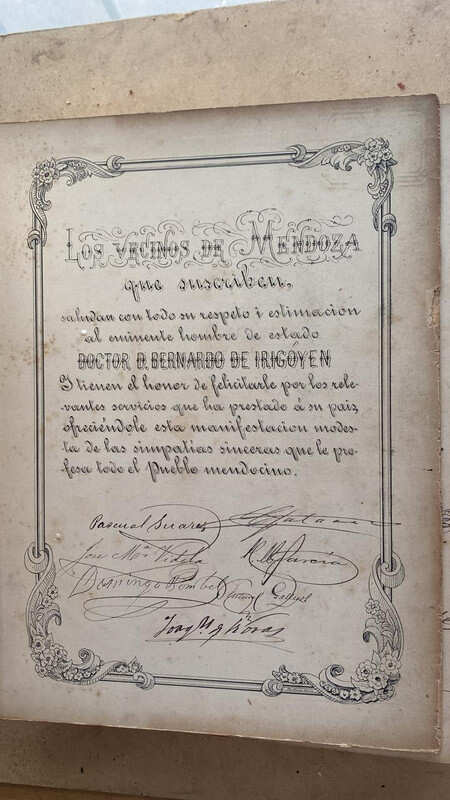 Los vecinos de Mendoza
que suscriben,
saludan con todo su respeto i estimacion
al eminente hombre de estado
DOCTOR D. BERNARDO DE IRIGOYEN
I tienen el honor de felicitarle por los rele-
vantes servicios que ha prestado á su pais,
ofreciéndole esta manifestacion modes-
ta de las simpatias sinceras que le pro-
fesa todo el Pueblo mendocino.
Pascual Suarez
Jose Ma. Videla
García
Domingo Bombal